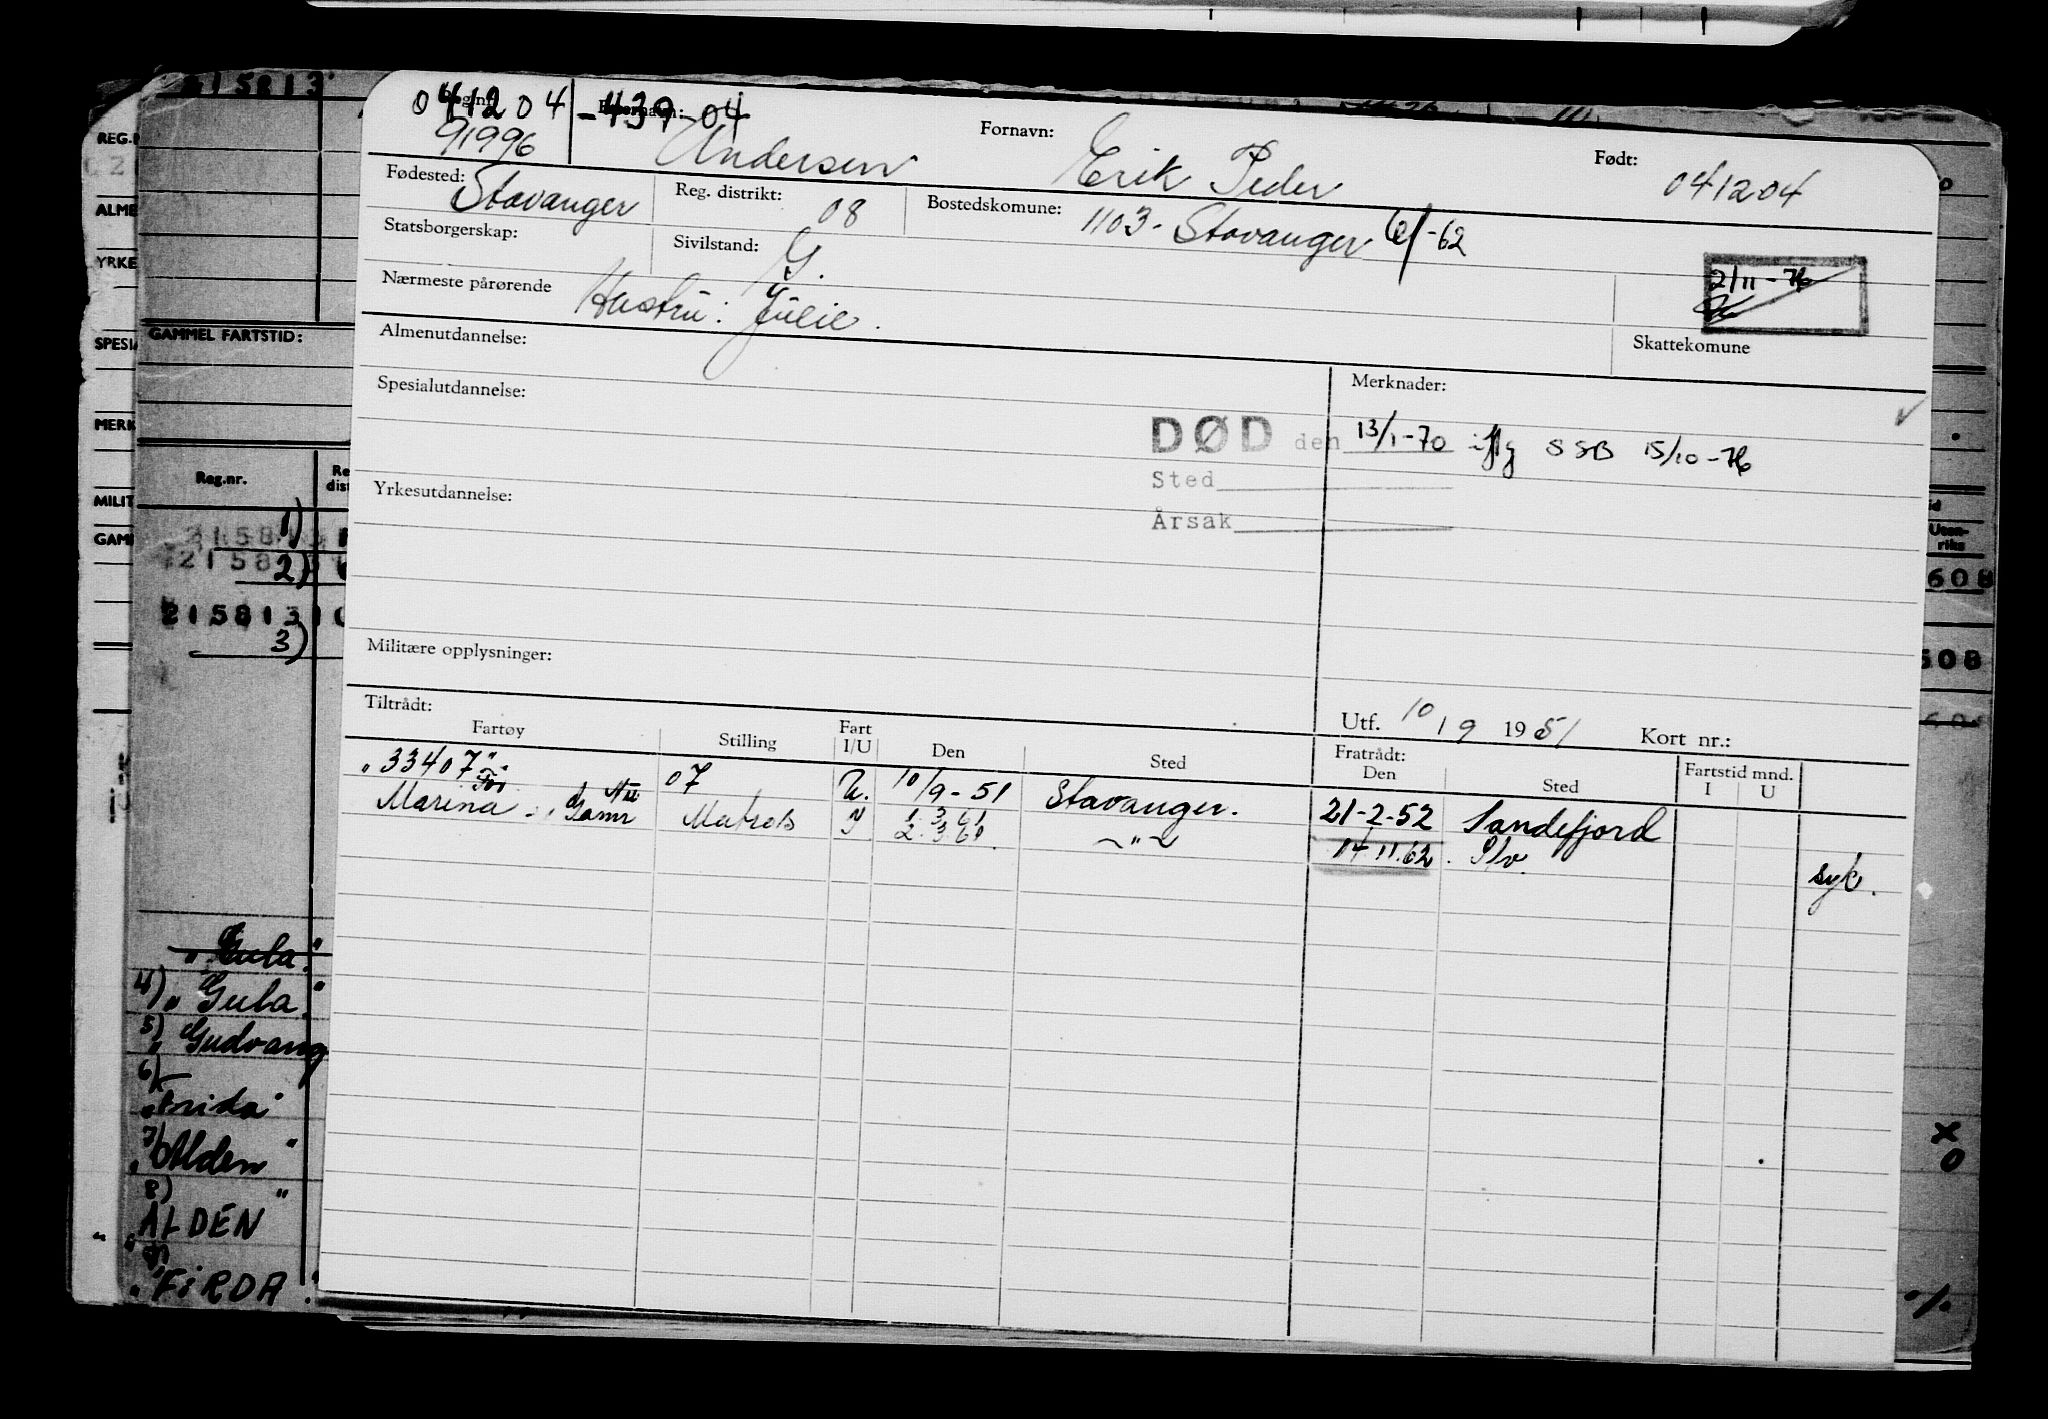 215813
041204 -439-04
Reg.nr. Etternavn: Fornavn: Født:
91996 Andersen Erik Peder 041204
Fødested: Stavanger Reg. distrikt: 08 Bostedskomune: 1103- Stavanger -62
Statsborgerskap: Sivilstand: G.
2/11-76
Nærmeste pårørende Hustru: Julie.
Almenutdannelse: Skattekomune
Spesialutdannelse: Merknader:
DØD den 13/1-70 iflg SSB 15/10-76
Sted
Yrkesutdannelse:
Årsak
Militære opplysninger:
Tiltrådt: Utf. 10/9 1951 Kort nr.:
Fartøy Stilling Fart I/U Den Sted Fratrådt: Den Sted Fartstid mnd. I U
"33407". 07 U. 10/9-51 Stavanger. 21-2-52 Sandefjord
Marina Matros 1.3.61
2.3.60. -"- 14.11.62. S/v. syk.
REG.
ALME
YRKE
GAMMEL FARTSTID:
SPESIA
MERK
Reg.nr. Re dist
MILIT
GAM
1)
215813
2)
215813
3)
"Gula."
4) "Gula."
5) "Gudvang
6)
7) "Alden"
8) "ALDEN"
"FIRDA."
Uten-
riks
608
608
x
0